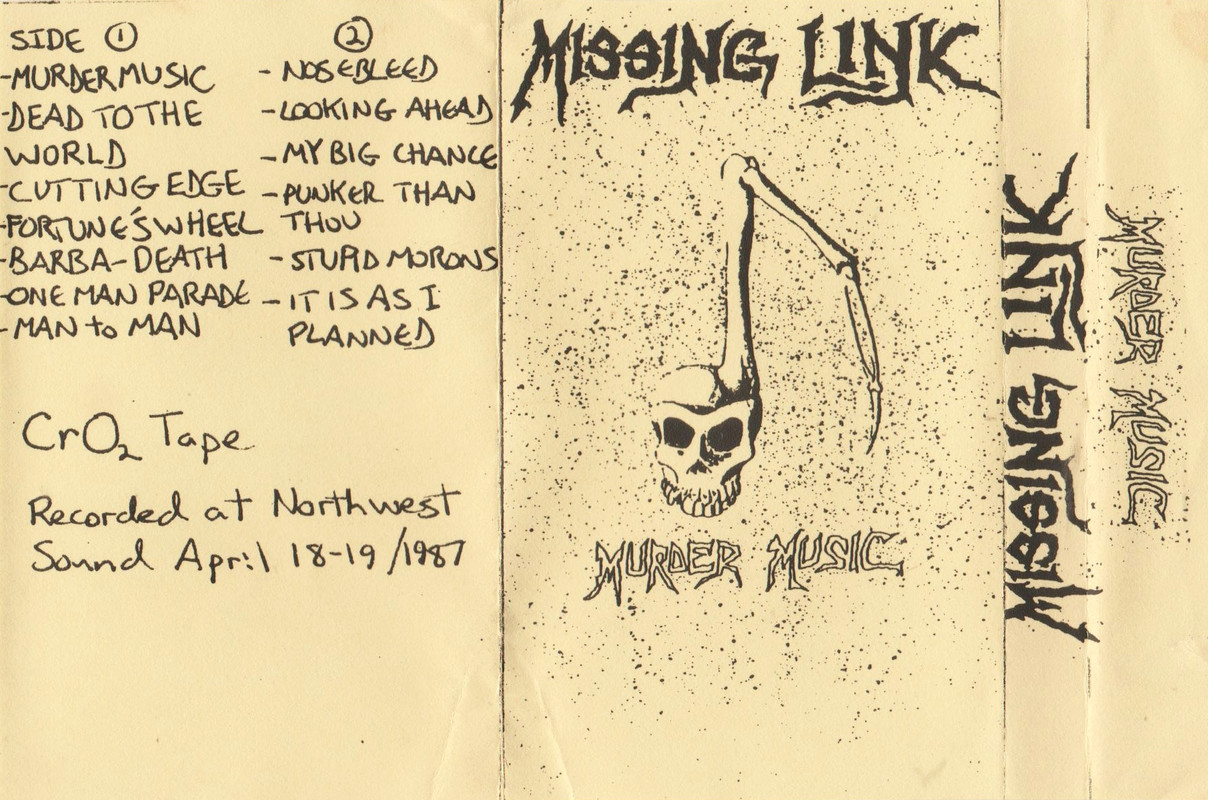 SIDE ①
-MURDER MUSIC
-DEAD TO THE
WORLD
-CUTTING EDGE
-FORTUNE'S WHEEL
-BARBA-DEATH
-ONE MAN PARADE
-MAN to MAN
②
-NOSEBLEED
-LOOKING AHEAD
-MY BIG CHANCE
-PUNKER THAN
THOU
-STUPID MORONS
-IT IS AS I
PLANNED
CrO₂ Tape
Recorded at Northwest
Sound April 18-19/1987
MISSING LINK
MURDER MUSIC
MISSING LINK
MURDER MUSIC